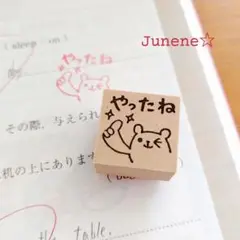 Junene☆
( sleep on )
やったね
その際、与えられ
やったね
机の上にあります
the table.